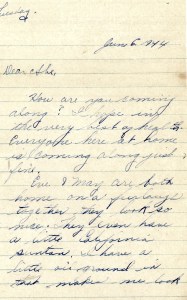 Tuesday.
June 6, 1944
Dear Abe,
How are you coming
along? I hope in
the very best of health.
Everyone here at home
is coming along just
fine.
Eve & May are both
home on a furlough
together. They look so
nice, they even have
a little California
suntan. We have a
little air ground in
that makes me look